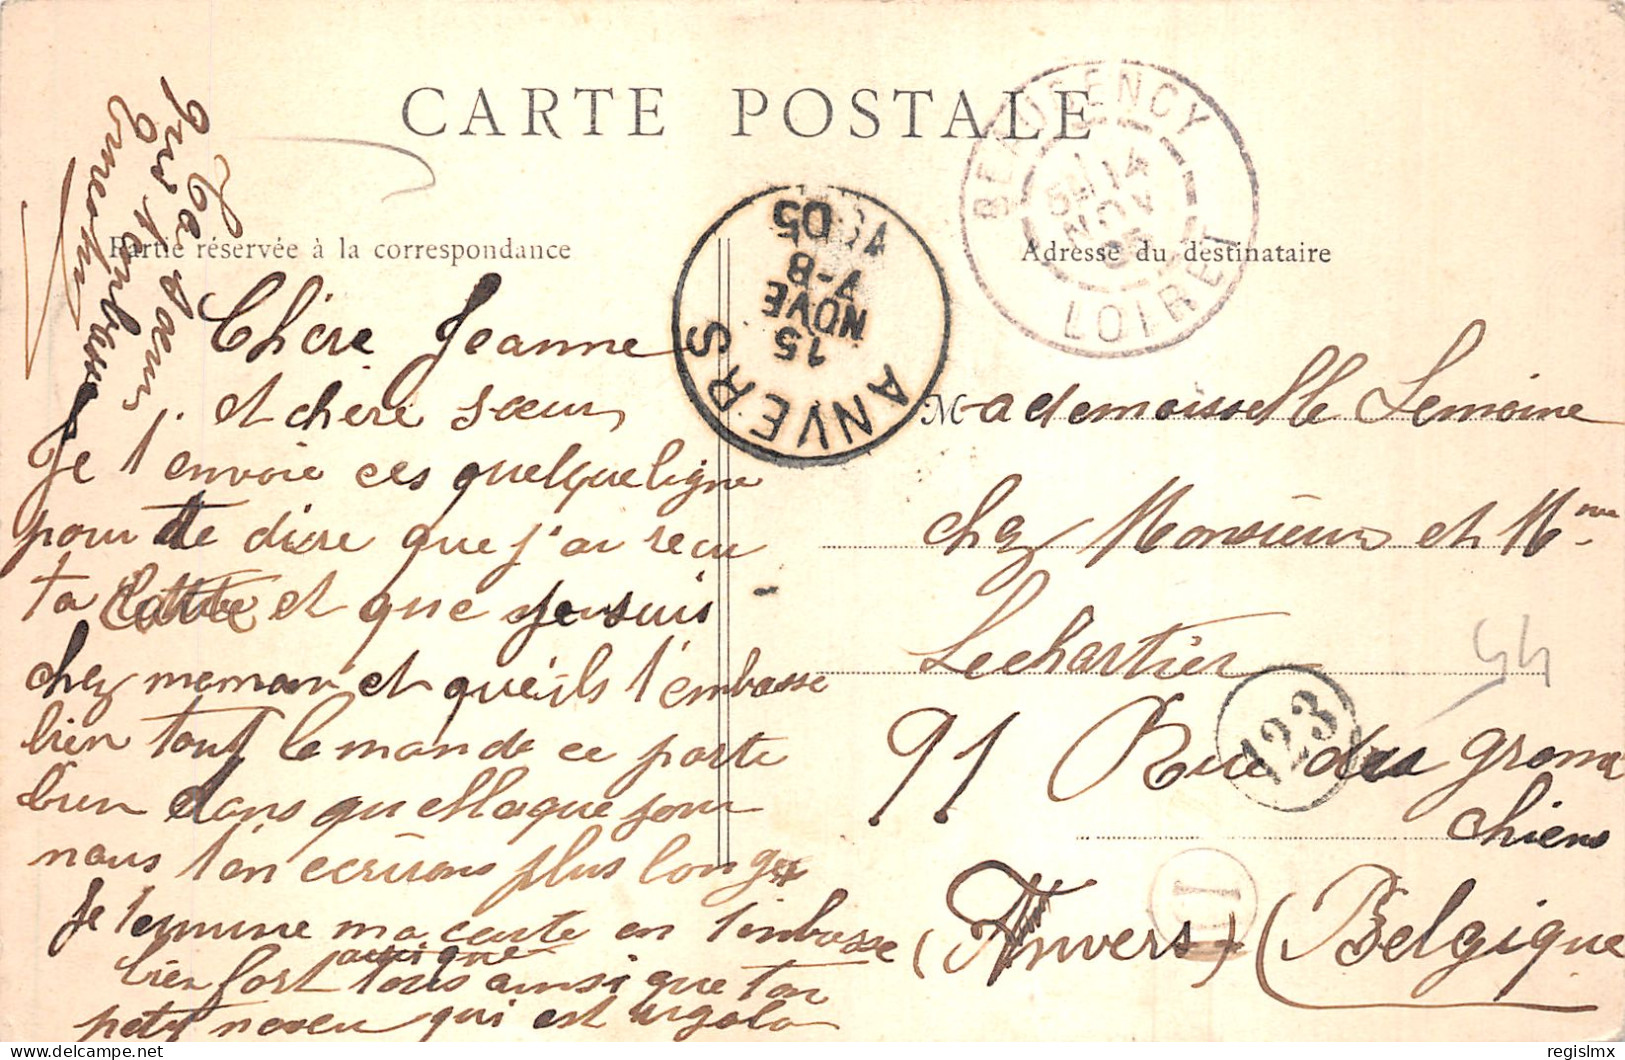 CARTE POSTALE
Partie réservée à la correspondance
Adresse du destinataire
BEAUGENCY
14
NOV
05
LOIRET
ANVERS
15
NOVE
7-8
05
Chère Jeanne
et chère sœur
Je t'envoie ces quelque ligne
pour te dire que j'ai recu
ta lettre et que je suis
chez meman et qu'eils t'embasse
bien tout le monde ce porte
bien dans quellaque jour
nous t'en ecrirons plus long
Je termine ma carte en t'embasse
bien fort tous ainsi que ton
petit neveu qui est
Ta Sœur
qui t'embasse
Mademoisselle Lemoine
chez Monsieur et Mme
Lechartier
91 Rue des grona
chiens
(Anvers) (Belgique
123
54
regislmx